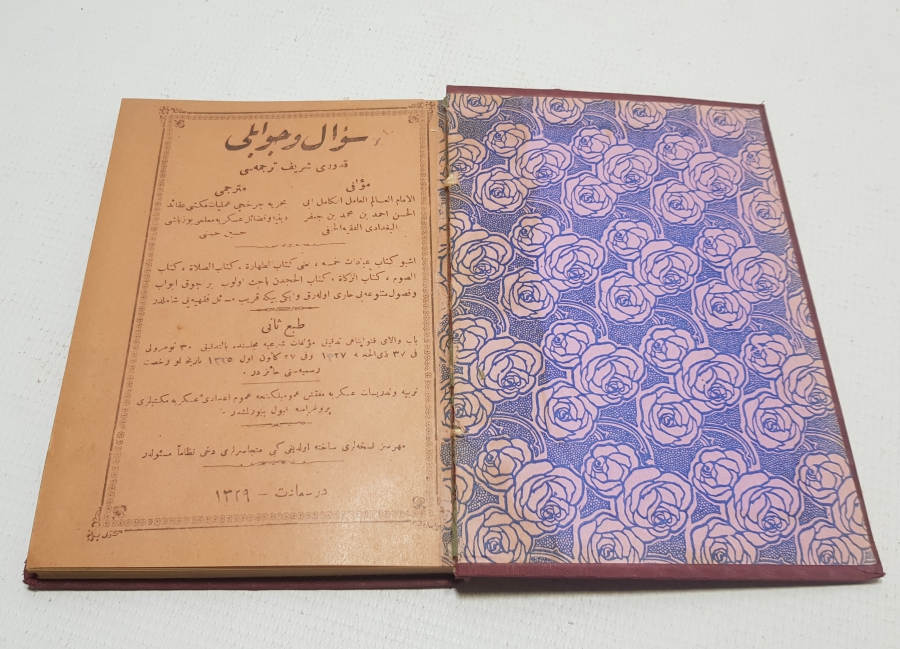 سؤال و جوابلی
قدوری شریف ترجمه‌سی
مؤلفی
الامام العالم العامل الکامل ابی
الحسن احمد بن محمد بن جعفر
البغدادی الفقیه الحنفی
مترجمی
بحریه چرخجی عملیات مکتبی عقائد
دینیه و فضائل عسکریه معلمی یوزباشی
حسین حسنی
اشبو کتاب عبادات خمسه، یعنی کتاب الطهارة، کتاب الصلاة، کتاب
الصوم، کتاب الزکاة، کتاب الحجدن باحث اولوب بر چوق ابواب
و فصول متنوعه‌یی حاوی اوله‌رق و ایکی بیکه قریب مسائل فقهیه‌یی شاملدر
طبع ثانی
باب والای فتواپناهی تدقیق مؤلفات شرعیه مجلسنده بالتدقیق ٣٠ نومرولی
فی ٢٧ ذی الحجه ١٣٢٧ و فی ٢٧ کانون اول ١٣٢٥ تاریخلو رخصت
رسمیه‌سنی حائزدر.
تربیه و تدریسات عسکریه مفتش عمومیلکنجه عموم اعدادی عسکریه مکتبلری
پروغرامنه قبول بیورلمشدر.
مهرسز نسخه‌لری ساخته اولدیغی کبی متجاسرلری دخی نظاماً مسئولدر
در سعادت – ١٣٢٩